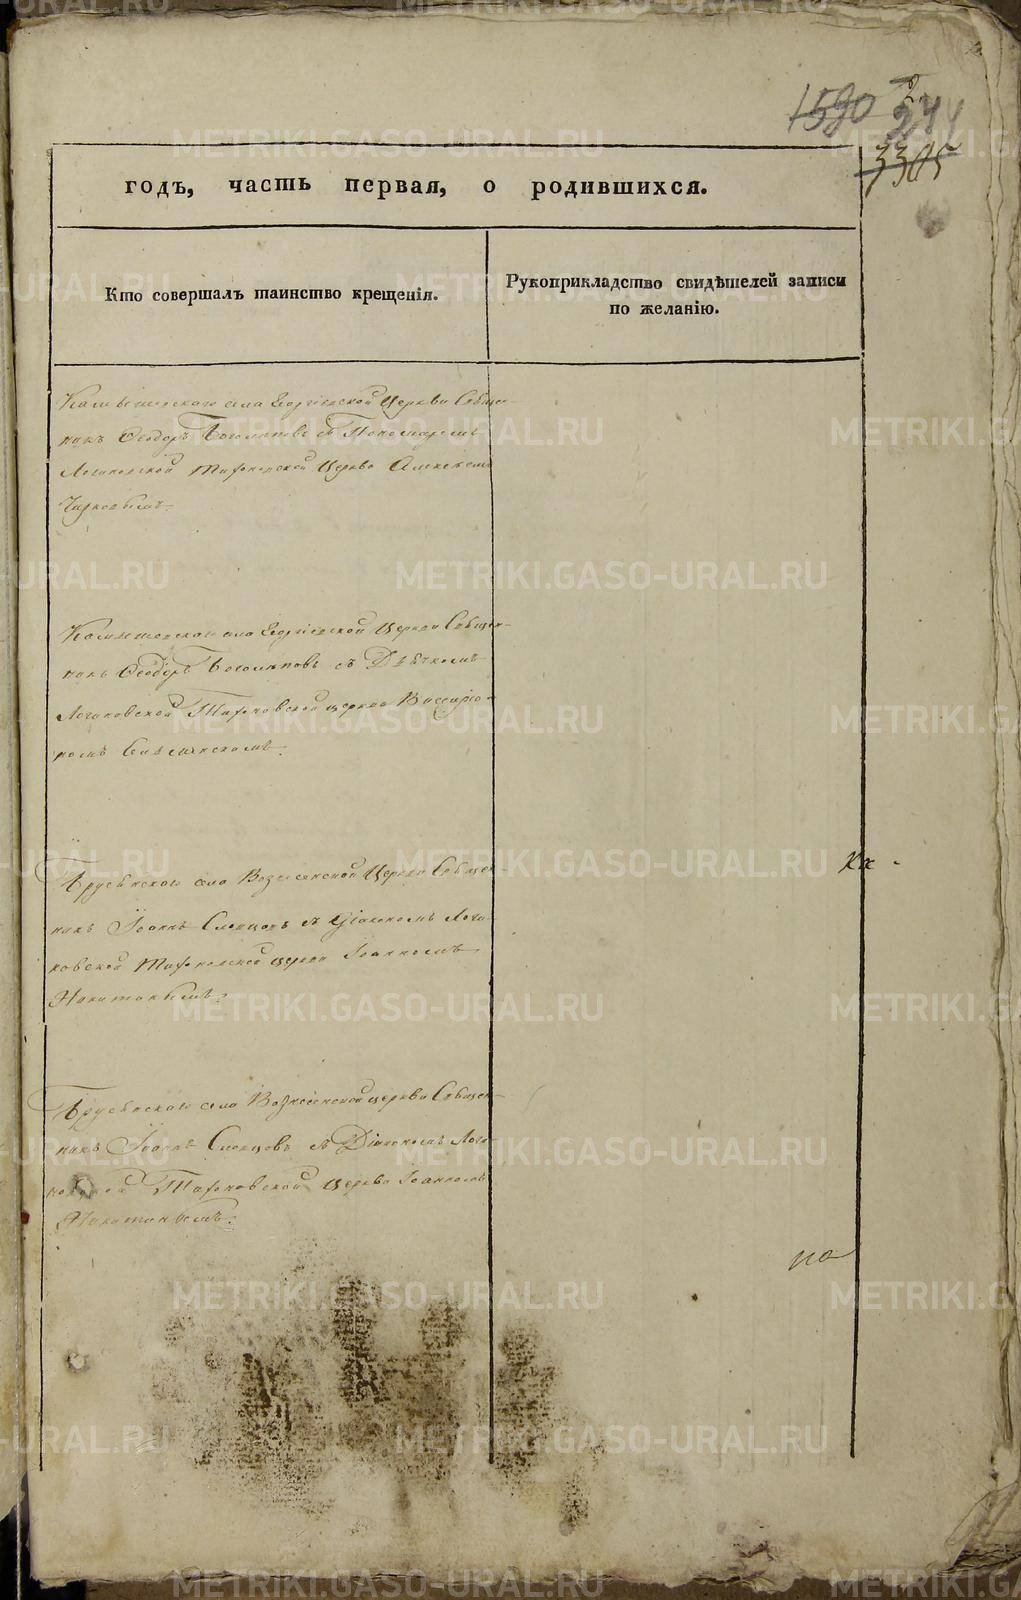 1590
244
3305
годъ, часть первая, о родившихся.
Кто совершалъ таинство крещенія.
Рукоприкладство свидѣтелей записи
по желанію.
села Георгіевской Церкви Священ-
никъ Ѳеодоръ Боголѣповъ съ Пономаремъ
Логиновской Тихоновской Церкви Алексѣемъ
села Георгіевской Церкви Священ-
никъ Ѳеодоръ Боголѣповъ съ Дьячкомъ
Логиновской Тихоновской церкви Виссаріо-
номъ
Брусянскаго села Вознесенской Церкви Священ-
никъ Іоаннъ Словцовъ съ Діакономъ Логи-
новской Тихоновской церкви Іоанномъ
Никитинымъ.
Брусянскаго села Вознесенской церкви Священ-
никъ Іоаннъ Словцовъ съ Діакономъ Логи-
новской Тихоновской Церкви Іоанномъ
Никитинымъ.
по
METRIKI.GASO-URAL.RU